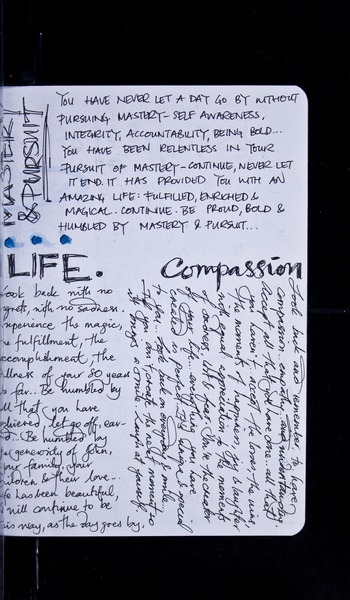 MASTERY
& PURSUIT
YOU HAVE NEVER LET A DAY GO BY WITHOUT
PURSUING MASTERY - SELF AWARENESS,
INTEGRITY, ACCOUNTABILITY, BEING BOLD...
YOU HAVE BEEN RELENTLESS IN YOUR
PURSUIT OF MASTERY - CONTINUE, NEVER LET
IT END. IT HAS PROVIDED YOU WITH AN
AMAZING LIFE: FULFILLED, ENRICHED &
MAGICAL. CONTINUE. BE PROUD, BOLD &
HUMBLED BY MASTERY & PURSUIT...
LIFE.
Look back with no
regrets, with no sadness.
Experience the magic,
the fulfillment, the
accomplishment, the
fullness of your 80 years
so far... Be humbled by
all that you have
let go off, ear-
Be humbled by
generosity of
your family, your
children & their love...
life has been beautiful,
& will continue to be
this way, as the day goes by.
Compassion
Look back and remember to have
compassion... empathy and understanding.
Accept all that you have done... all that
you haven't. accept the loves, the wins,
the moments of happiness, joys & laughter
with equal appreciation to the moments
of sadness, loss & fear. You're the creator
of your life... everything you have
created is perfect. It is divine & special
to you... Look back on everyday & smile.
If you can't create the next moment so
it brings a smile. laugh at yourself.